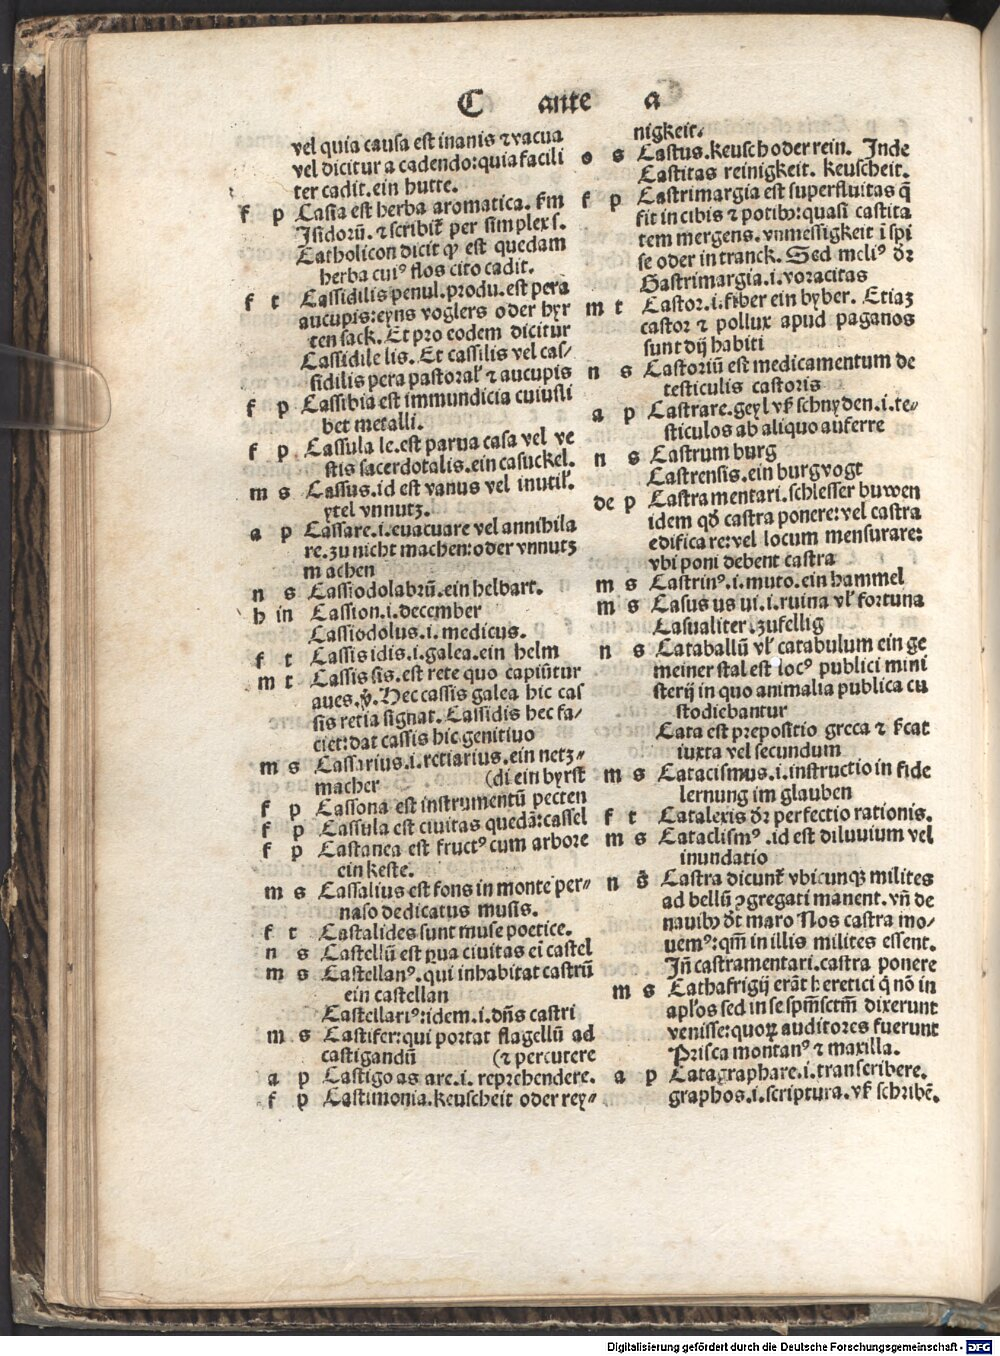 C ante a
vel quia causa est inanis ⁊ vacua
vel dicitur a cadendo: quia facili
ter cadit. ein hutte.
f p Casia est herba aromatica. s̄m
Isidorū. ⁊ scribit̄ per simplex s.
Catholicon dicit ꝙ est quedam
herba cuiꝰ flos cito cadit.
f t Cassidilis penul. produ. est pera
aucupis: eyns voglers oder hyr
ten sack. Et pro eodem dicitur
Cassidile lis. Et cassilis vel cas/
sidilis pera pastoral' ⁊ aucupis
f p Cassibia est immundicia cuiusli
bet metalli.
f p Cassula le. est parua casa vel ve
stis sacerdotalis. ein casuckel.
m s Cassus. id est vanus vel inutil'.
ytel vnnutz.
a p Cassare. i. euacuare vel annihila
re. zu nicht machen: oder vnnutz
machen
n s Cassiodolabrū. ein helbart.
h in Cassion. i. december
Cassiodolus. i. medicus.
f t Cassis idis. i. galea. ein helm
m t Cassis sis. est rete quo capiūtur
aues. ṽ. Hec cassis galea hic cas
sis retia signat. Cassidis hec fa/
ciet: dat cassis hic genitiuo
m s Cassarius. i. retiarius. ein netz⸗
macher (di ein byrst
f p Cassona est instrumentū pecten
f p Cassula est ciuitas quedā: cassel
f p Castanea est fructꝰ cum arbore
ein keste.
m s Cassalius est fons in monte per⸗
naso dedicatus musis.
f t Castalides sunt muse poetice.
n s Castellū est ꝑua ciuitas ei castel
m s Castellanꝰ. qui inhabitat castrū
ein castellan
Castellariꝰ: idem. i. dn̄s castri
m s Castifer: qui portat flagellū ad
castigandū (⁊ percutere
a p Castigo as are. i. reprehendere.
f p Castimonia. keuscheit oder rey⸗
nigkeit.
o s Castus. keusch oder rein. Inde
Castitas reinigkeit. keuscheit.
f p Castrimargia est superfluitas q̄
fit in cibis ⁊ potibꝫ: quasi castita
tem mergens. vnmessigkeit ī spi
se oder in tranck. Sed meliꝰ dr̄
Gastrimargia. i. voracitas
m t Castor. i. fiber ein byber. Etiaꝫ
castor ⁊ pollux apud paganos
sunt dij habiti
n s Castoriū est medicamentum de
testiculis castoris
a p Castrare. geyl vß schnyden. i. te⸗
sticulos ab aliquo auferre
n s Castrum burg
Castrensis. ein burgvogt
de p Castramentari. schlesser buwen
idem qđ castra ponere: vel castra
edificare: vel locum mensurare:
vbi poni debent castra
m s Castrinꝰ. i. muto. ein hammel
m s Casus us ui. i. ruina vl' fortuna
Casualiter. zufellig
n s Cataballū vl' catabulum ein ge
meiner stal est locꝰ publici mini
sterij in quo animalia publica cu
stodiebantur
Cata est prepositio greca ⁊ s̄icat
iuxta vel secundum
m s Catacismus. i. instructio in fide
lernung im glauben
f t Catalexis dr̄ perfectio rationis.
m s Cataclismꝰ. id est diluuium vel
inundatio
n s̄ Castra dicunt̄ vbicunqꝫ milites
ad bellū ꝯgregati manent. vn̄ de
nauibꝫ dt̄ maro Nos castra mo/
uemꝰ: qm̄ in illis milites essent.
In̄ castramentari. castra ponere
m s Cathafrigij erāt heretici q̇ nō in
apl'os sed in se spm̄ sctm̄ dixerunt
venisse: quoꝝ auditores fuerunt
Prisca montanꝰ ⁊ maxilla.
a p Catagraphare. i. transcribere.
graphos. i. scriptura. vß schribē.
Digitalisierung gefördert durch die Deutsche Forschungsgemeinschaft - DFG